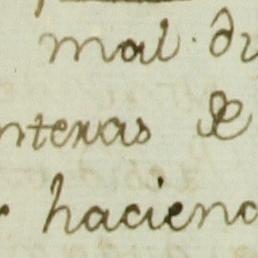 mal du
nteras de
r hacienc